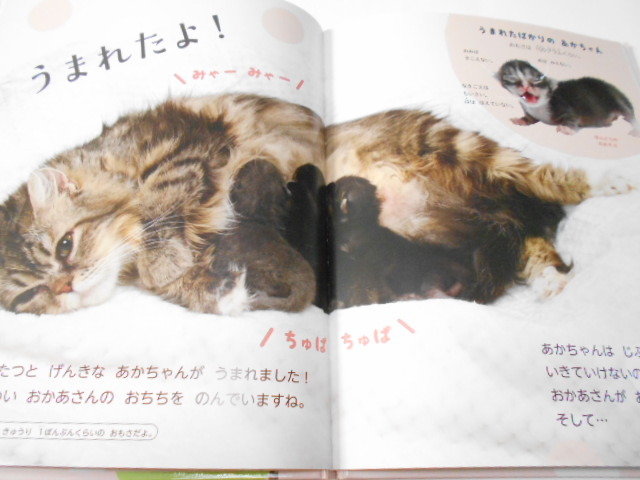 うまれたよ！
みゃー みゃー
うまれたばかりの あかちゃん
ちゅぱ ちゅぱ
たつと げんきな あかちゃんが うまれました！
おかあさんの おちちを のんでいますね。
きゅうり 1ぽんぶんくらいの おもさだよ。
あかちゃんは
いきていけないの
おかあさんが
そして…